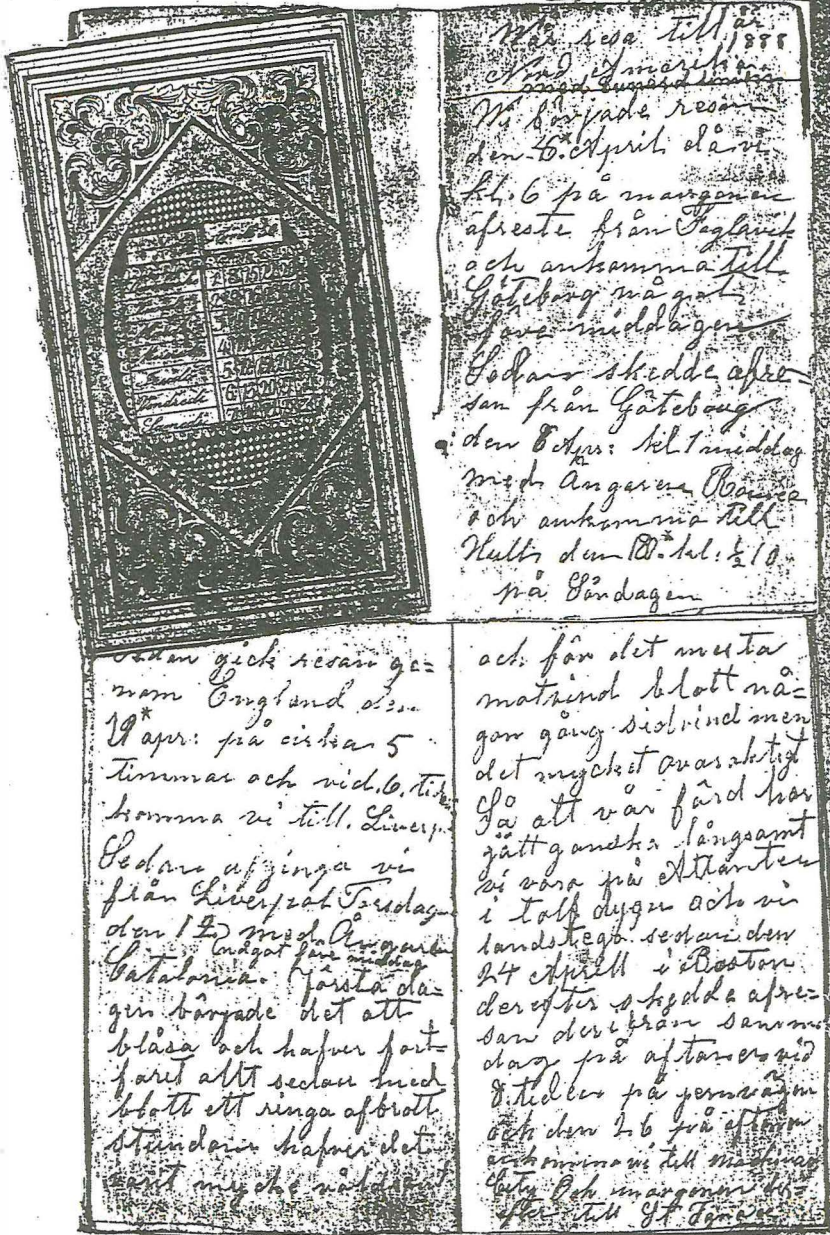 Vår resa till år 1888
Nord Amerika
med Cunard linien
Vi började resan
den 6 April då vi
kl. 6 på morgonen
afreste från Foglavik
och ankomma till
Göteborg något
före middagen
Sedan skedde afre=
san från Göteborg
den 8 Apr: kl 1 middag
med Ångaren Romeo
och ankomma till
Hull, den kl: ½ 10
på Söndagen
Sedan gick resan ge=
nom England den
apr: på cirka 5
timmar och vid 6. tiden
komma vi till. Liverp.
Sedan afginga vi
från Liverpol Torsdag
den 12 med Ångaren
något före middag
Catalonia. Första da=
gen började det att
blåsa och hafver fort=
farit allt sedan med
blott ett ringa afbrott
stundom hafver det
varit mycke våldsamt
och för det mesta
motvind blott nå=
gon gång sidvind men
det mycket ovaraktigt
Så att vår färd har
gått ganska långsamt
vi voro på Atlanten
i tolf dygn och vi
landstego sedan den
24 Aprill i Boston
derefter skedde afre=
san derifrån samma
dag på aftonen vid
8 tiden på jernvägen
och den 26 på aftonen
ankomma vi till Mackinaw
City Och morgonen der=
efter till St Ignace